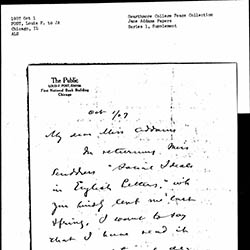 1907 Oct 1
POST, Louis F. to JA
Chicago, IL
ALS
Swarthmore College Peace Collection
Jane Addams Papers
Series 1, Supplement
The Public
LOUIS F. POST, EDITOR
First National Bank Building
Chicago
Oct 1/07
My dear Miss Addams:
In returning Miss
Scudder's "Social Ideals
in English Letters," wh
you kindly lent me last
Spring, I want to say
that I have read it